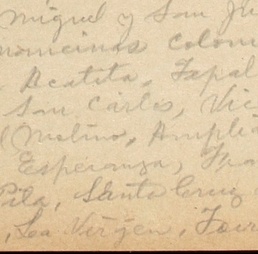 Miguel y San Ju
colom
Acatita, Tapal
San Carlos, Vic
(Molino, Amplia
Esperanza, Fra
Pila, Santa Cruz
, La Virgen, Tour